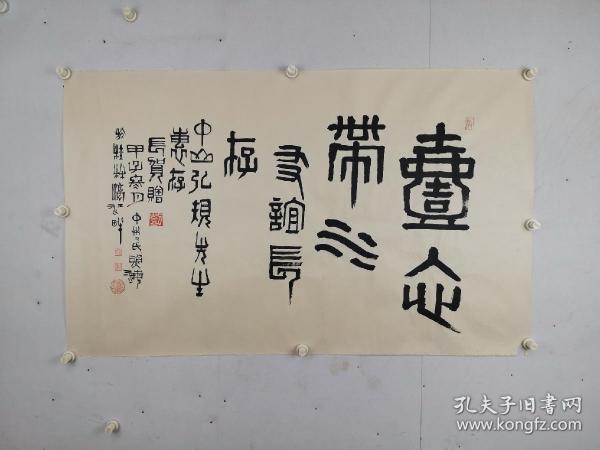 壹衣
帶水
友誼長
存
中山弘規先生
惠存
長賀贈
甲子
孔夫子旧书网
www.kongfz.com